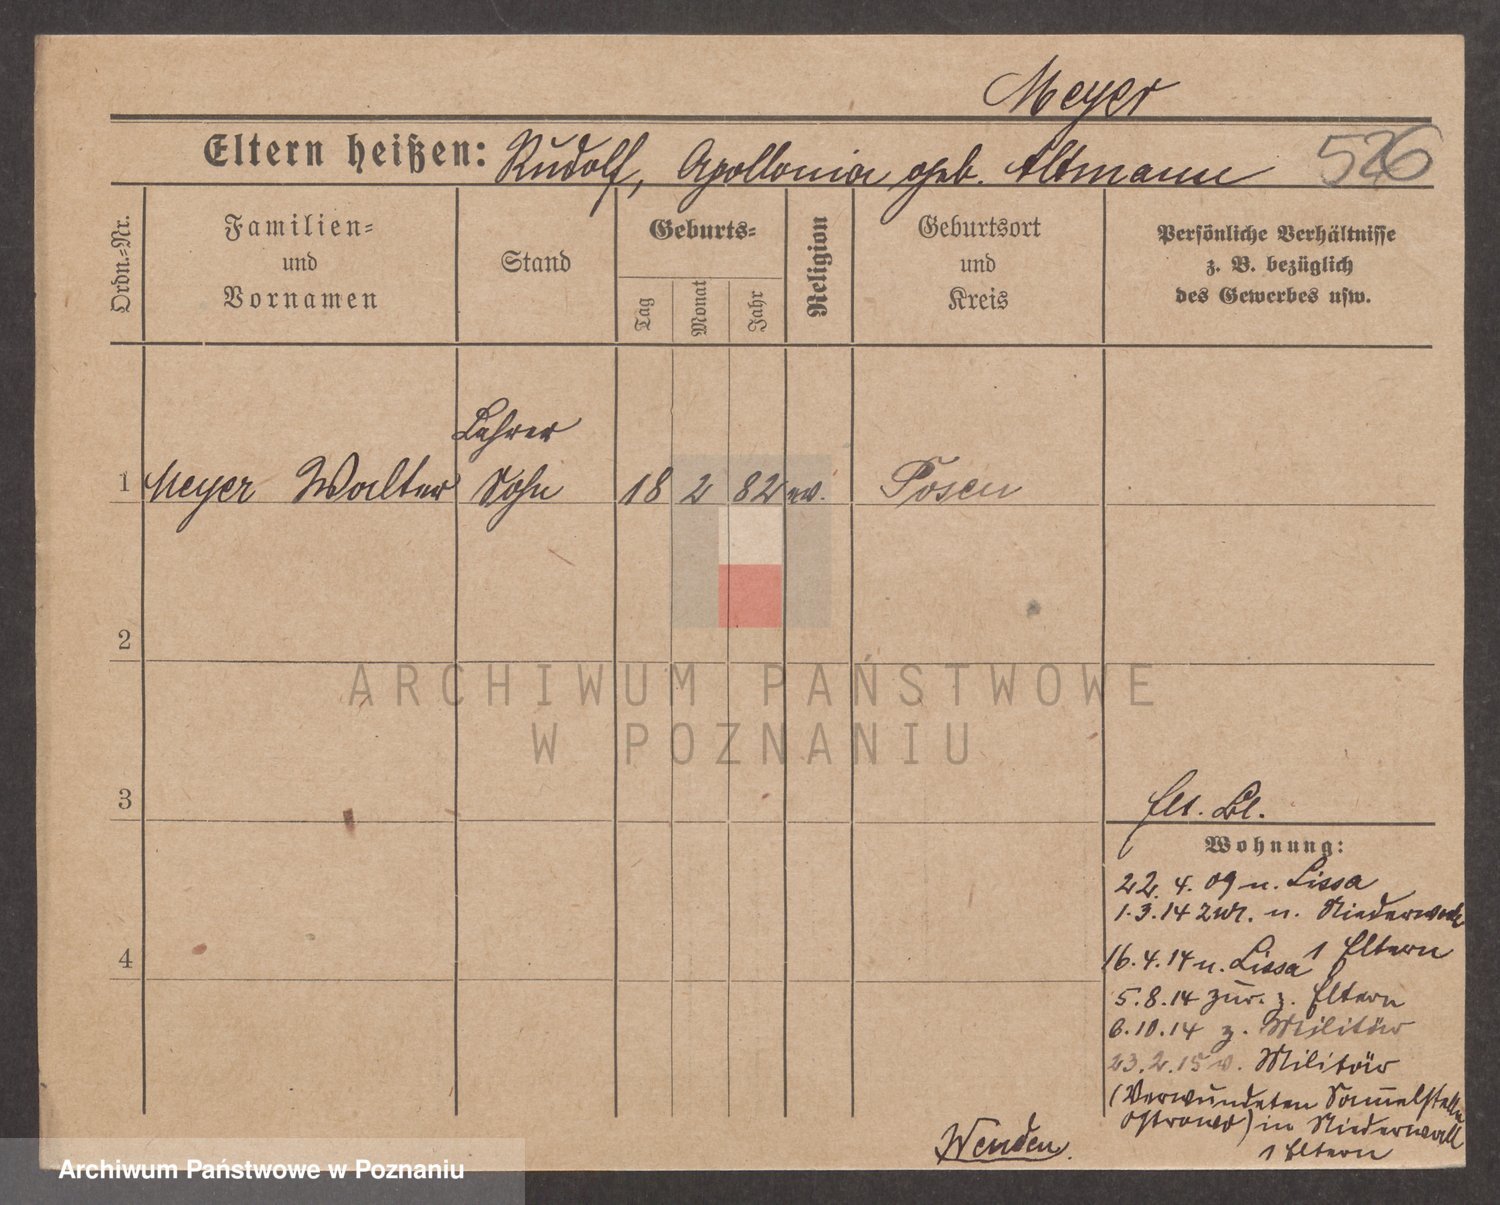 Meyer
Eltern heißen: Rudolf, Apollonia geb. Altmann 526
Ordn.=Nr.
Familien=
und
Vornamen
Stand
Geburts=
Tag
Monat
Jahr
Religion
Geburtsort
und
Kreis
Persönliche Verhältnisse
z. B. bezüglich
des Gewerbes usw.
Lehrer
1 Meyer Walter Sohn 18 2 82 ev. Posen
2
3
4
ARCHIWUM PAŃSTWOWE
W POZNANIU
Elt. Bl.
Wohnung:
22. 4. 09 n. Lissa
1.3.14 zur. n. Niederwall
1 Eltern
16.4.14 n. Lissa
5.8.14 zur. z. Eltern
6.10.14 z. Militär
23.2.15 v. Militär
(Verwundeten Sam̅elstelle
Ostrowo) in Niederwall
1 Eltern
Wenden.
Archiwum Państwowe w Poznaniu